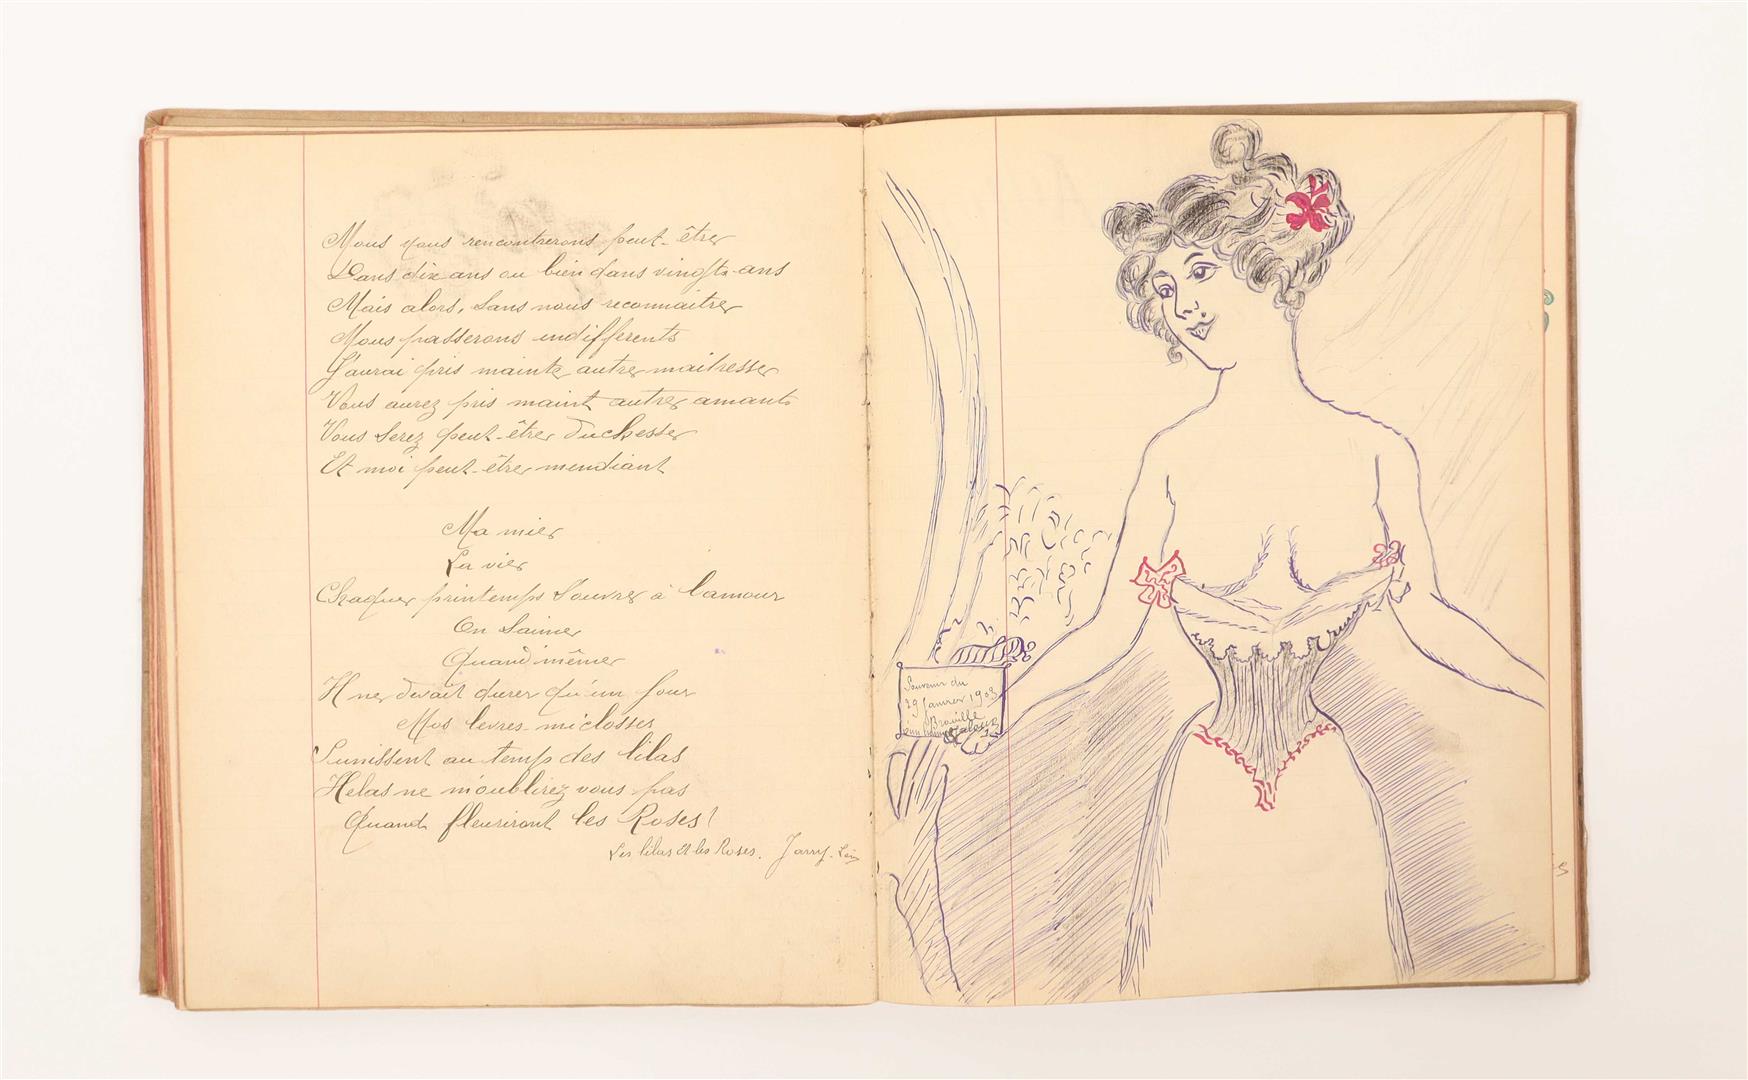 Nous nous rencontrerons peut-être
Dans dix ans ou bien dans vingts-ans
Mais alors, sans nous reconnaitre
Nous passerons indifferents
J'aurai pris mainte autre maitresse
Vous aurez pris maint autre amants
Vous serez peut-être duchesse
Et moi peut-être mendiant
Ma mie
La vie
Chaque printemps s'ouvre à l'amour
On s'aime
Quand même
Il ne devait durer qu'un jour
Mos levres micloses
S'unissent au temps des lilas
Helas ne m'oublirez vous pas
Quand fleuriront les Roses!
Les lilas et les Roses. Jarry.
Souvenir du
29 Janvier 1903
Braville